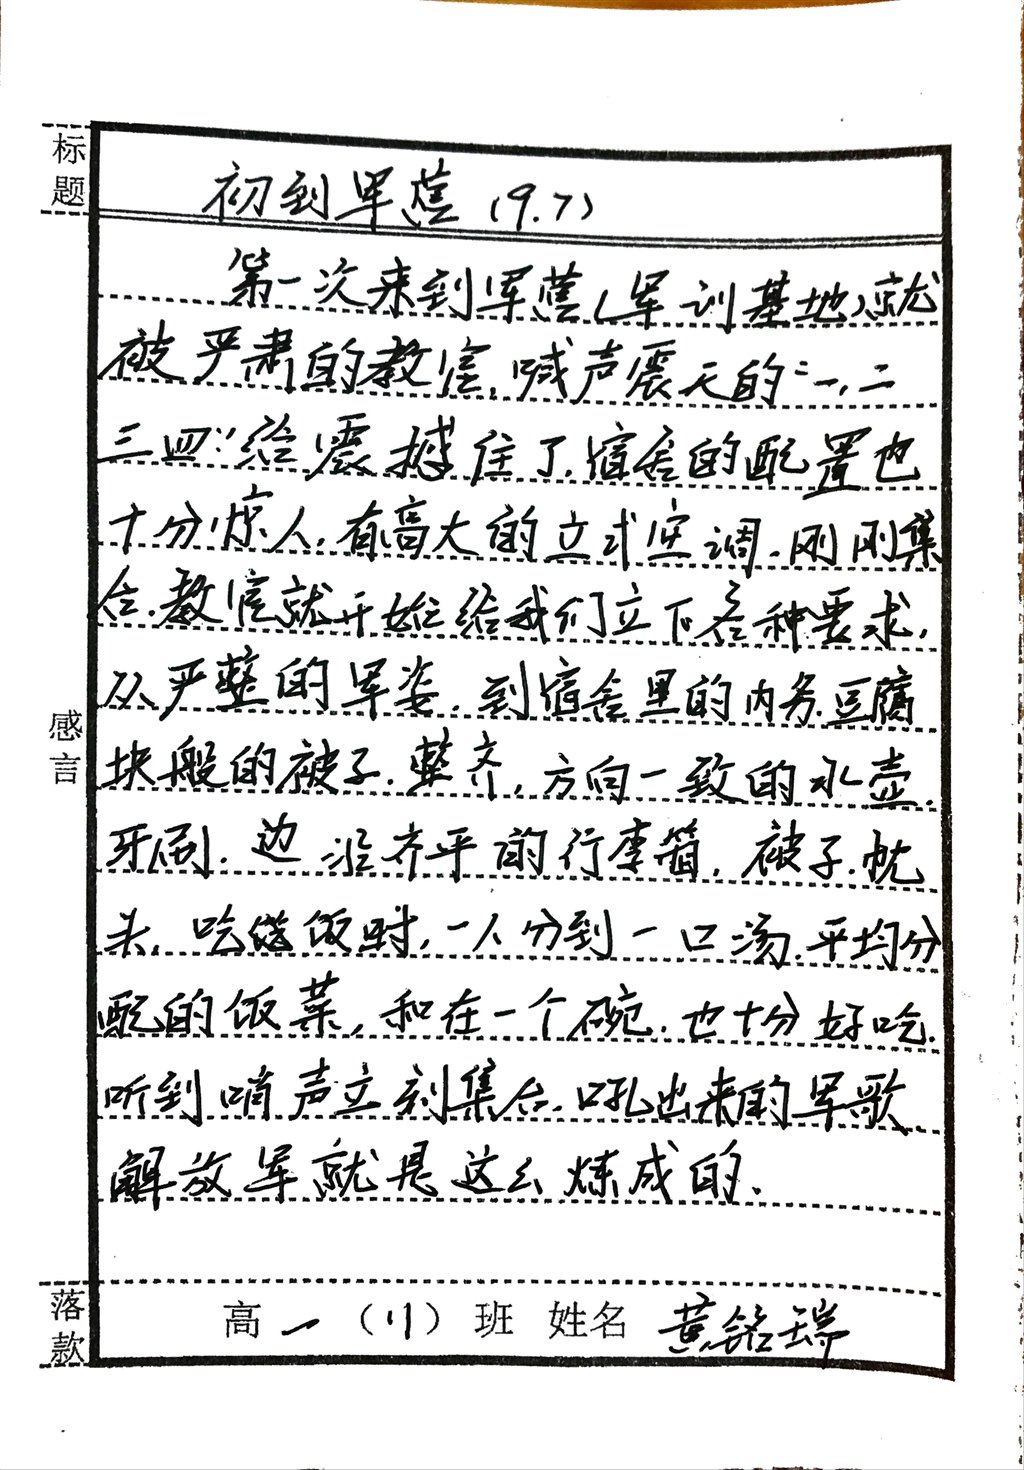 标题
初到军营(9.7)
第一次来到军营(军训基地)就
被严肃的教官,喊声震天的“一,二
三四”给震撼住了.宿舍的配置也
十分惊人.有高大的立式空调.刚刚集
合.教官就开始给我们立下各种要求,
从严整的军姿.到宿舍里的内务.豆腐
块般的被子.整齐,方向一致的水壶.
牙刷.边沿齐平的行李箱.被子.枕
头.吃饭时,一人分到一口汤.平均分
配的饭菜,和在一个碗.也十分好吃.
听到哨声立刻集合.吼出来的军歌
解放军就是这么炼成的.
感言
落款
高一(11)班 姓名 黄铭瑞